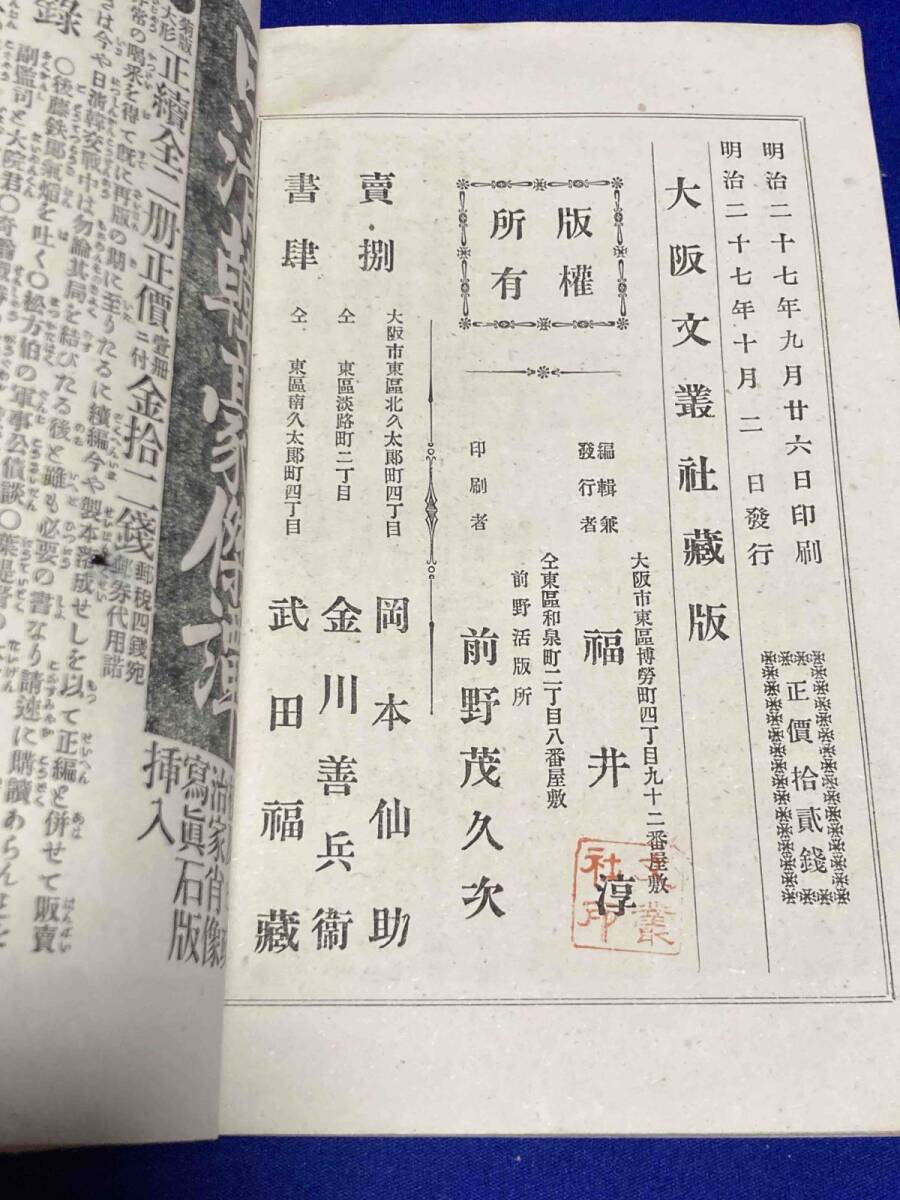 明治二十七年九月廿六日印刷
明治二十七年十月二日發行
正價拾貳錢
大阪文叢社藏版
版權
所有
大阪市東區博勞町四丁目九十二番屋敷
編輯兼
發行者
福井淳
文叢
社印
仝東區和泉町二丁目八番屋敷
前野活版所
印刷者
前野茂久次
賣捌
書肆
大阪市東區北久太郎町四丁目
岡本仙助
仝 東區淡路町二丁目
金川善兵衞
仝 東區南久太郎町四丁目
武田福藏
寫眞石版
挿入
菊版
大形
正續全二册正價壹册ニ付金拾二錢
郵税四錢宛
郵券代用諾
の喝采を得て既に再版の期に至りたるに續編今や製本落成せしを以て正編と併せて販賣
は今や日清韓交戰中は勿論其局を結びたる後と雖も必要の書なり請速に購讀あらん
錄
○後藤鉄郎氣焔を吐く○松方伯の軍事公債談○
副監司と大院君○